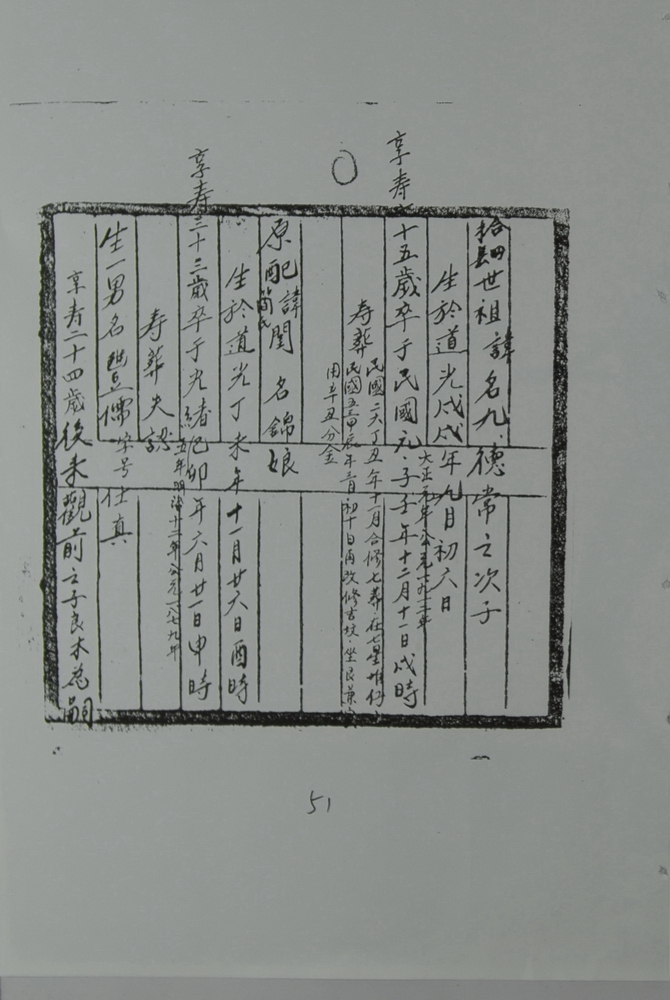 拾四世祖諱名九德常之次子
生於道光戊戌年九月初六日
大正元年公元一九一二年
享寿七十五歲卒于民國元子壬年十二月十一日戌時
民國二六丁丑年十一月合修七葬在七星堆仔
寿葬民國五三甲辰年三月初十日再改修吉坟坐艮兼
用辛丑分金
原配簡氏諱閏名錦娘
生於道光丁未年十一月廿六日酉時
享寿三十三歲卒于光緒己卯年六月廿一日申時
五年明治十二年公元一八七九年
寿葬失認
生一男名豐儒字号仕真
享寿二十四歲後来觀前之子良木為嗣
51